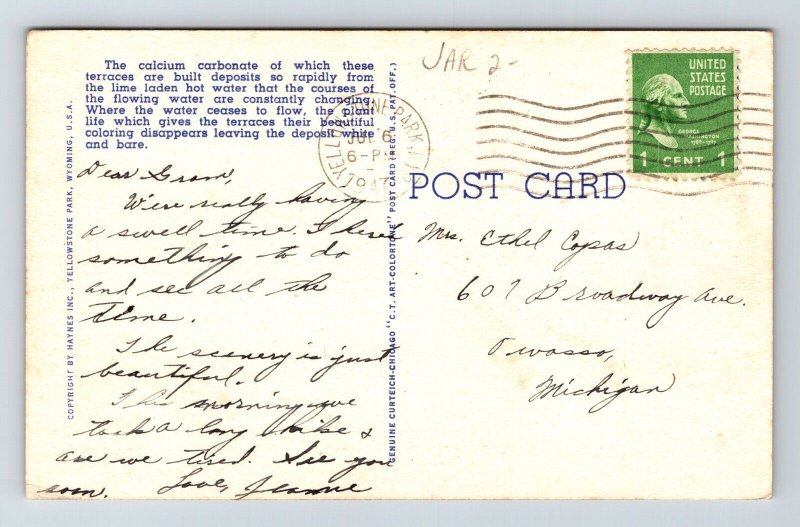 The calcium carbonate of which these
terraces are built deposits so rapidly from
the lime laden hot water that the courses of
the flowing water are constantly changing.
Where the water ceases to flow, the plant
life which gives the terraces their beautiful
coloring disappears leaving the deposit white
and bare.
Dear Gram,
We're really having
a swell time. There's
something to do
and see all the
time.
The scenery is just
beautiful.
This morning we
took a long hike &
are we tired. See you
soon. Love, Jeanne
COPYRIGHT BY HAYNES INC., YELLOWSTONE PARK, WYOMING, U.S.A.
GENUINE CURTEICH-CHICAGO "C.T. ART-COLORTONE" POST CARD (REG. U.S. PAT. OFF.)
JAR 2-
YELLOWSTONE PARK
6
6-PM
194
UNITED
STATES
POSTAGE
GEORGE
WASHINGTON
1 CENT 1
POST CARD
Mrs. Ethel Copas
607 Broadway Ave.
Owosso,
Michigan